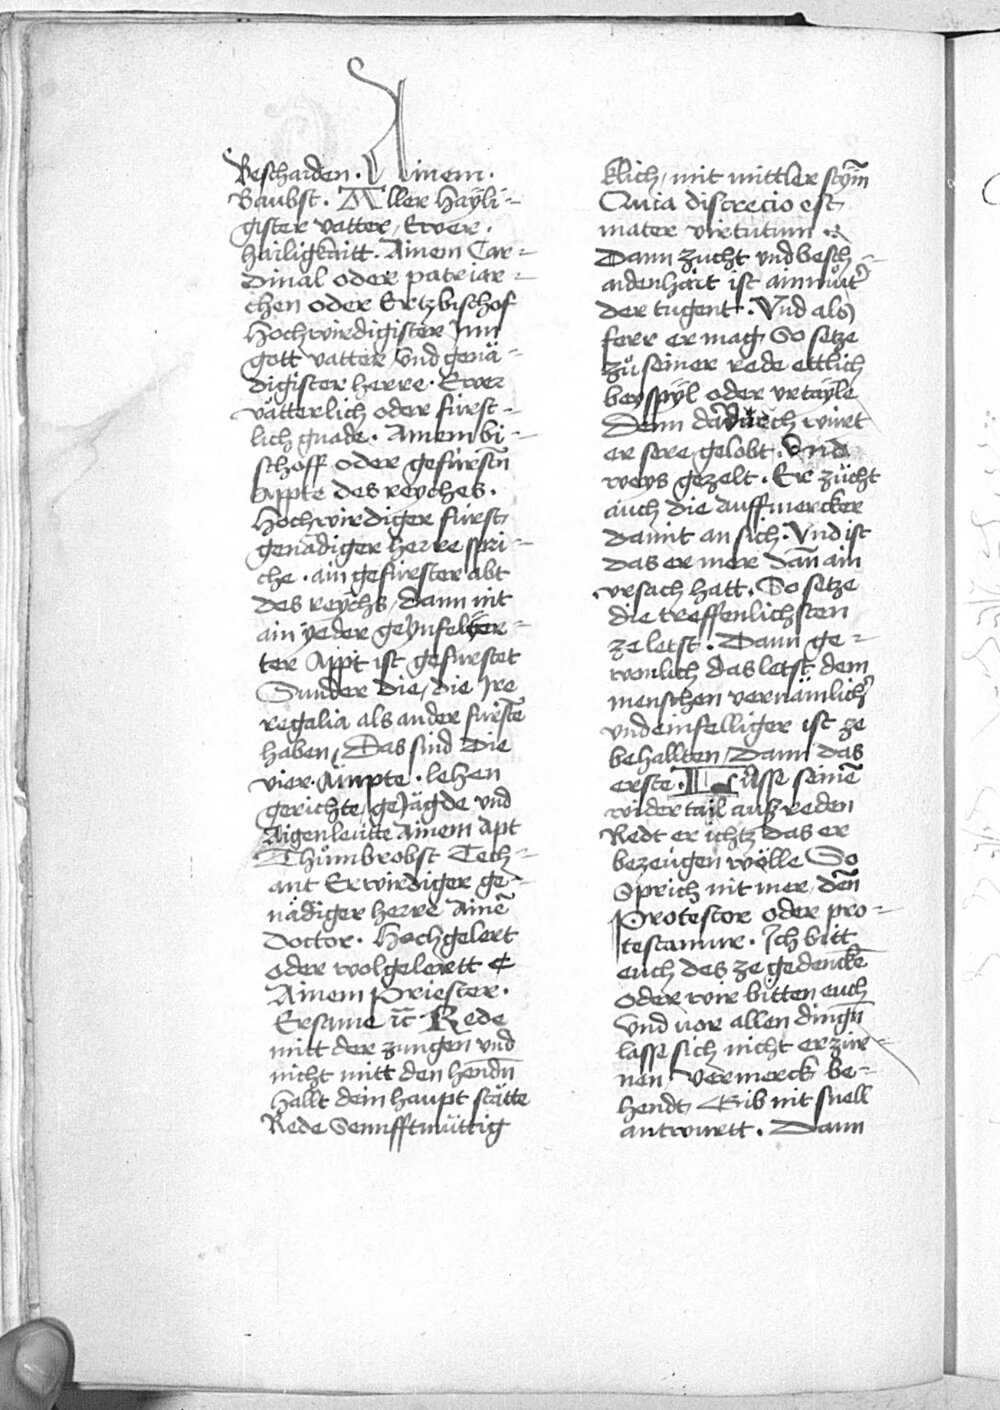 Beschaiden. Ainem.
Baubst. Aller Hayli-
gister vatter, Ewer.
hailigkaitt. Ainem Car-
dinal oder patriar-
chen oder Ertzbischof
Hochwirdigister Inn
gott vatter vnd genä-
digister herre. Ewer
vätterlich oder fürst-
lich gnade. Ainem bi-
schoff oder gefürstñ
Appte des reyches.
Hochwirdiger fürst
genädiger herre spri-
che. ain gefürster abt
des reychs, dann nit
ain yeder
ter Appt ist gefürstet
Sunder die, die Ire
regalia als ander fürstē
haben, Das sind die
vier. Ämpte. lehen
gerichte, gejägde vnd
Aigenleutte Ainem Apt
Thůmbrobst Tech-
ant Erwirdiger ge-
nädiger herre Ainē
Doctor. Hochgelert
oder wolgelertt
Ainem Priester.
Ersame ꝛc̄ Rede
mitt der zungen vnd
nicht mitt den hendñ
Hallt dein haupt stätte
Rede Sennfftmüttig
klich, mit mittler stym̄
Quia discrecio est
mater virtutum
Dann zucht vnd besch-
aidenhait ist ain můtʼ
der tugent. Vnd als
ferr er mag So setze
zů seiner rede ettlich
beyspyl oder vrtayle
Denn dardurch wirt
er sere gelobt. Vnd
weys gezelt. Er zücht
auch die auffmercker
damit an sich. Vnd ist
das er mer dañ ain
vrsach hatt. So setze
die treffenlichsten
ze letst. Dann ge-
wonlich das letst dem
menschen vernämlichʼ
vnd einfelliger ist ze
behallten, Dann das
erste. Lasse seinē
widertail ausreden
Redt er ichtz das er
bezeugen wölle So
Sprich nit mer, deñ
Protestor oder pro-
testamur. Ich bitt
euch des ze gedenckē
oder wir bitten euch
Vnd vor allen dingñ
lasse sich nicht erzür-
nen Vermerck be-
hendt Gib nit snell
antwurtt. Dann